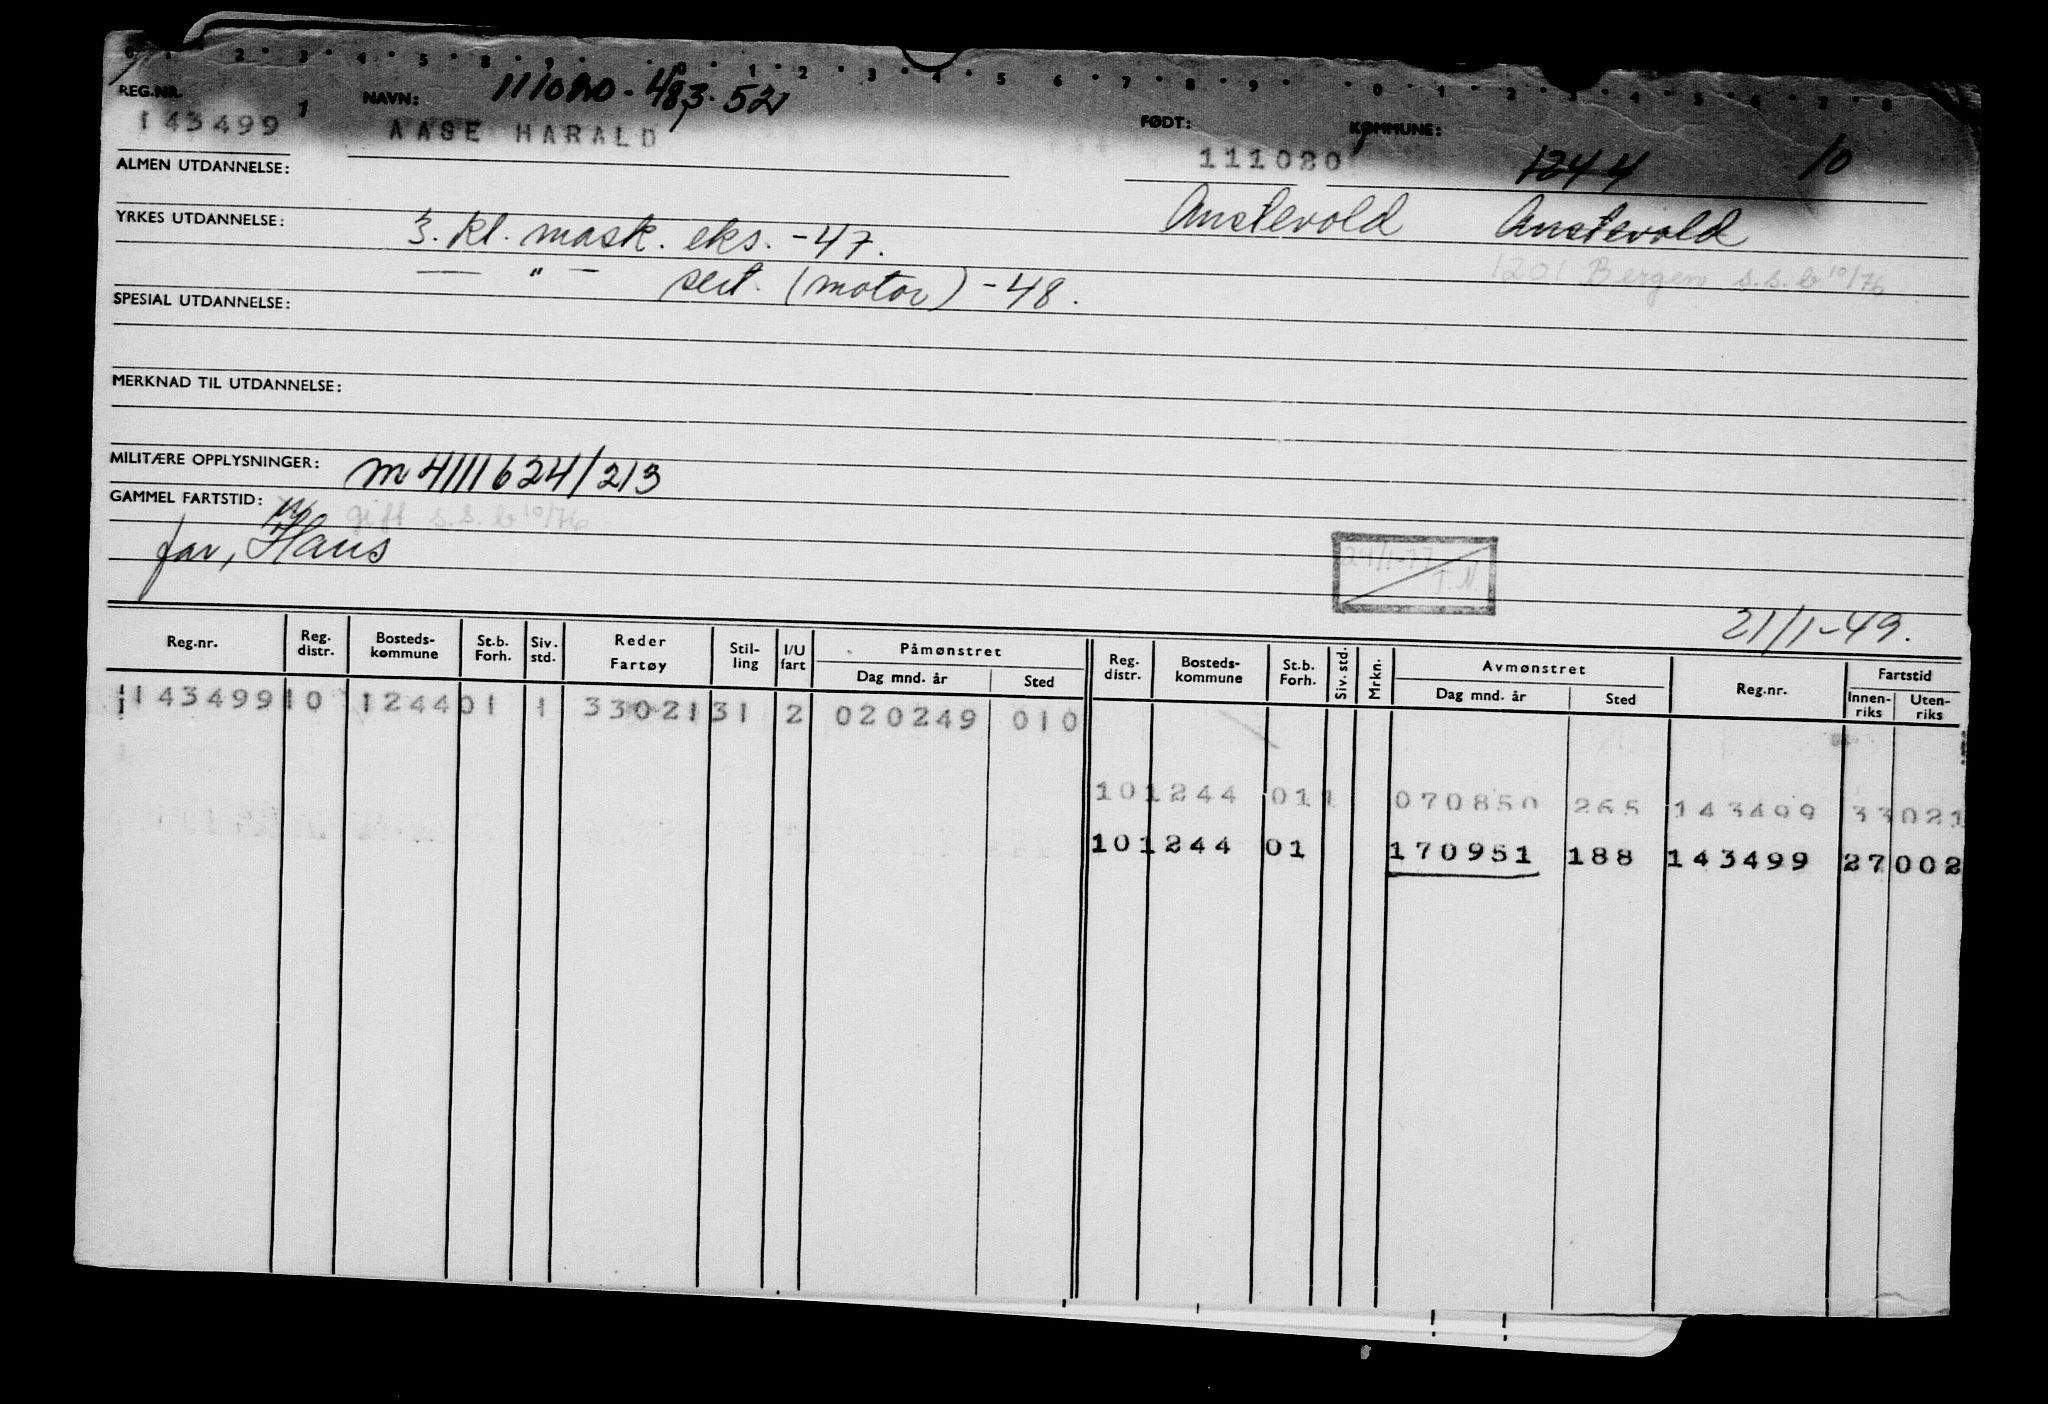 REG.NR. 1 NAVN: 111020 - 483.52 FØDT: KOMMUNE:
143499 AASE HARALD 111020 1244 10
ALMEN UTDANNELSE:
YRKES UTDANNELSE: 3. kl. mask. eks. -47. Austevold Austevold
— " — sert. (motor) -48. 1201 Bergen s.s.b 10/76
SPESIAL UTDANNELSE:
MERKNAD TIL UTDANNELSE:
MILITÆRE OPPLYSNINGER: m 4111624/213
GAMMEL FARTSTID: gift s.s.b 10/76
far, Hans
24/1-77 T.N
21/1-49.
Reg.nr. Reg. distr. Bosteds-kommune St.b. Forh. Siv. std. Reder Fartøy Stil-ling I/U fart Påmønstret Dag mnd. år Sted Reg. distr. Bosteds-kommune St.b. Forh. Siv. std. Mrkn. Avmønstret Dag mnd. år Sted Reg.nr. Fartstid Innen-riks Uten-riks
143499 10 1244 01 1 33021 31 2 020249 010
10 1244 01 1 070850 265 143499 33021
10 1244 01 170951 188 143499 27002